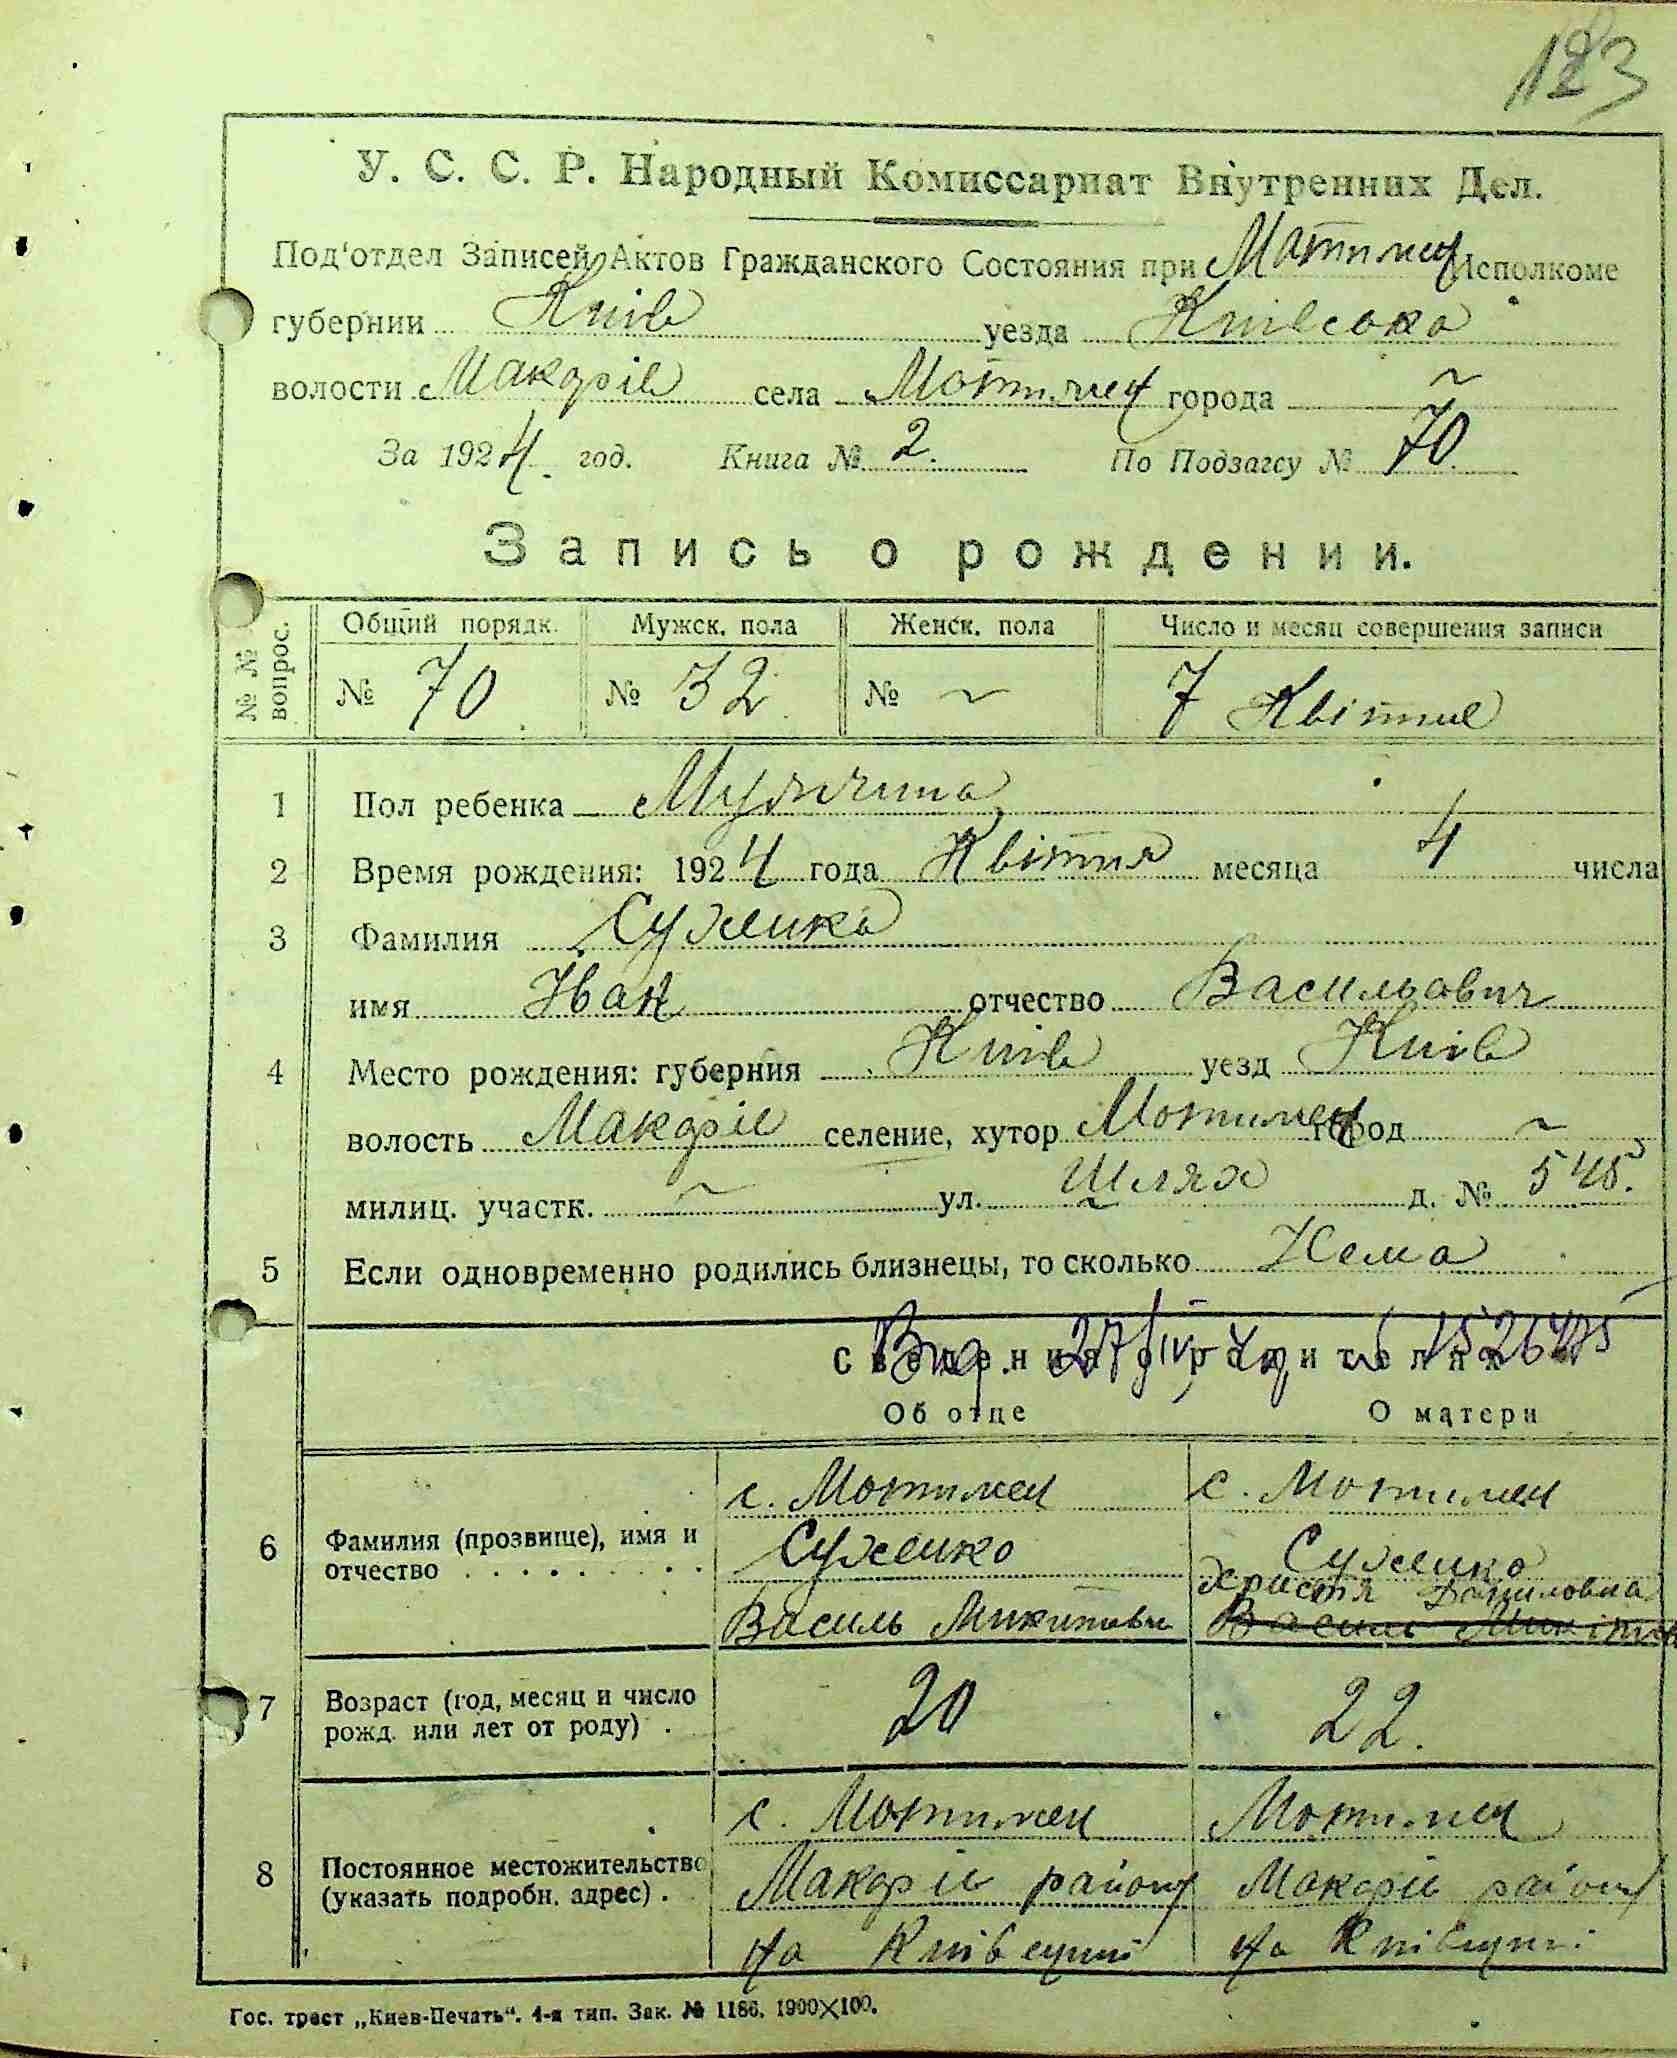 123
У. С. С. Р. Народный Комиссариат Внутренних Дел.
Под'отдел Записей Актов Гражданского Состояния при Мотижен Исполкоме
губернии Київ уезда Київська
волости Макарів села Мотижен города ~
За 1924 год. Книга № 2. По Подзагсу № 70
Запись о рождении.
№ № вопрос. Общий порядк. Мужск. пола Женск. пола Число и месяц совершения записи
№ 70 № 32 № ~ 7 Квітня
1 Пол ребенка Мужчина
2 Время рождения: 1924 года Квітня месяца 4 числа
3 Фамилия
имя Іван отчество Васильович
4 Место рождения: губерния Київ уезд Київ
волость Макарів селение, хутор Мотижен город ~
милиц. участк. ~ ул. Шлях д. № 545.
5 Если одновременно родились близнецы, то сколько Нема
Сведения о родителях
Об отце О матери
с. Мотижен с. Мотижен
6 Фамилия (прозвище), имя и
отчество . . . . . . . . .
Христя Даниловна
Василь Микитович Василь
7 Возраст (год, месяц и число
рожд. или лет от роду) . 20 22.
с. Мотижен Мотижен
8 Постоянное местожительство
(указать подробн. адрес) . Макарів району Макарів району
на Київщині на Київщині
Гос. трест „Киев-Печать“. 4-я тип. Зак. № 1186. 1900×100.